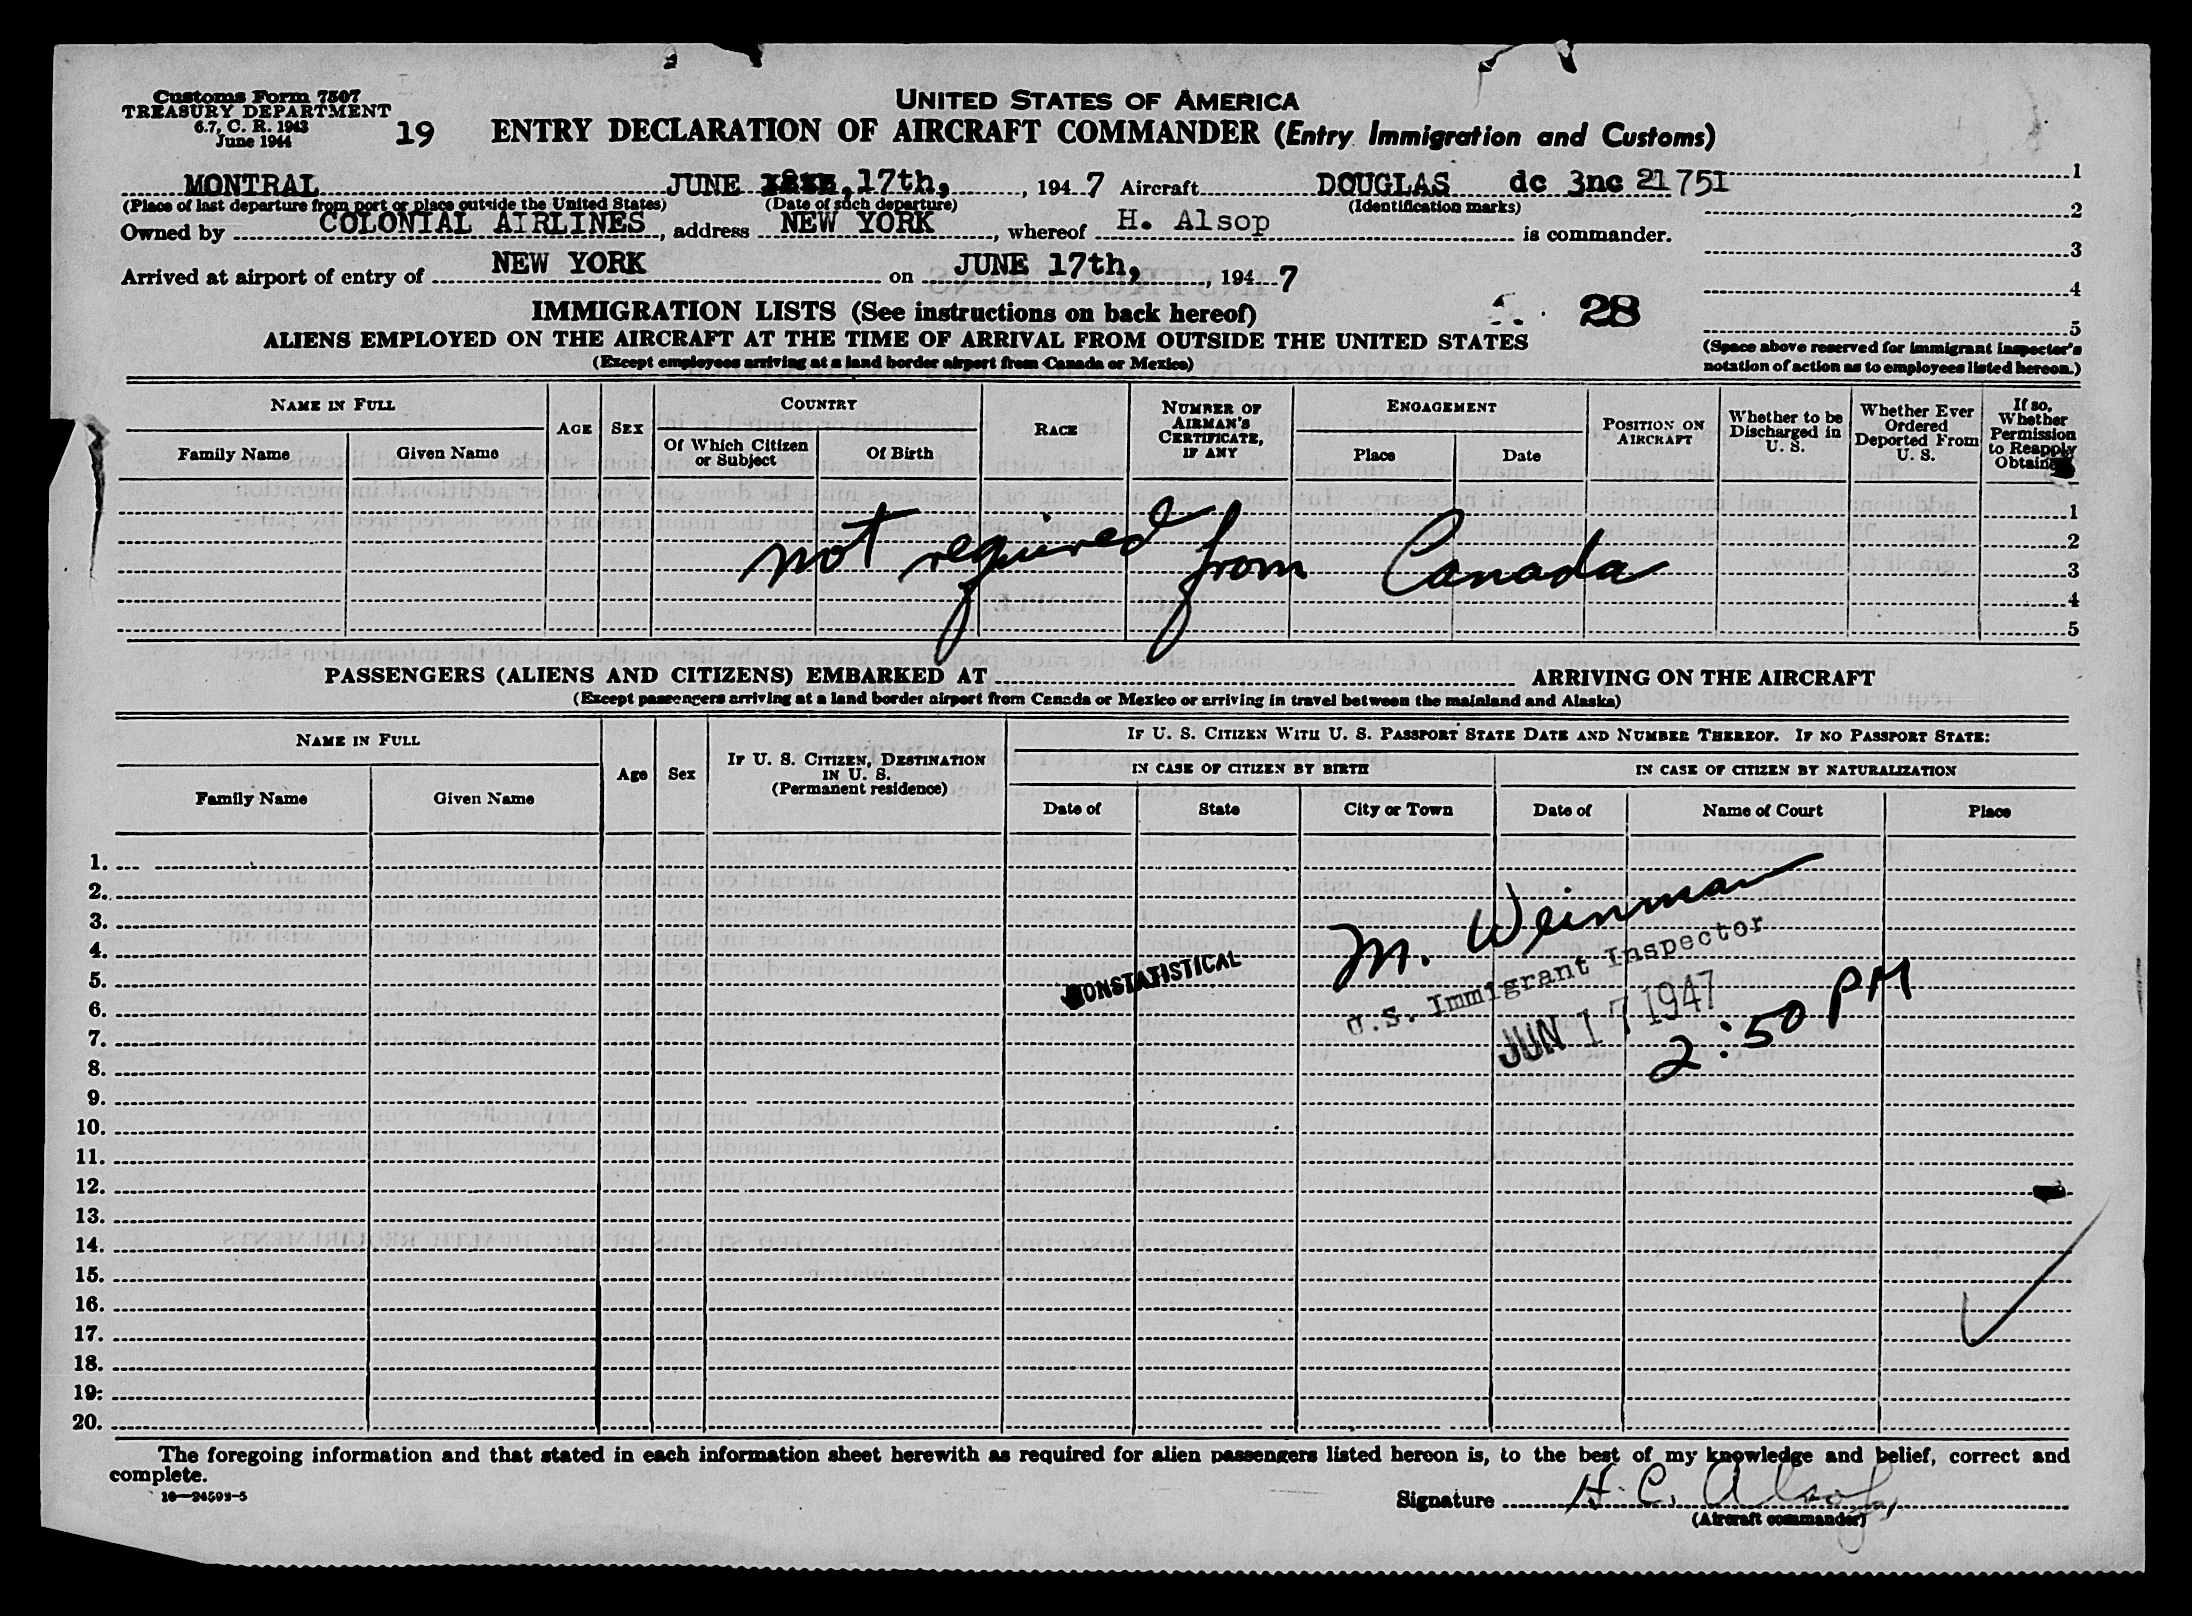 Customs Form 7507
TREASURY DEPARTMENT
6.7, C. R. 1943
June 1944
19
UNITED STATES OF AMERICA
ENTRY DECLARATION OF AIRCRAFT COMMANDER (Entry Immigration and Customs)
MONTRAL JUNE 17th, , 1947 Aircraft DOUGLAS dc 3nc 21751
(Place of last departure from port or place outside the United States) (Date of such departure) (Identification marks)
Owned by COLONIAL AIRLINES, address NEW YORK, whereof H. Alsop is commander.
Arrived at airport of entry of NEW YORK on JUNE 17th, , 1947
1
2
3
4
5
(Space above reserved for immigrant inspector's
notation of action as to employees listed hereon.)
IMMIGRATION LISTS (See instructions on back hereof)
28
ALIENS EMPLOYED ON THE AIRCRAFT AT THE TIME OF ARRIVAL FROM OUTSIDE THE UNITED STATES
(Except employees arriving at a land border airport from Canada or Mexico)
NAME IN FULL
Family Name
Given Name
AGE
SEX
COUNTRY
Of Which Citizen
or Subject
Of Birth
RACE
NUMBER OF
AIRMAN'S
CERTIFICATE,
IF ANY
ENGAGEMENT
Place
Date
POSITION ON
AIRCRAFT
Whether to be
Discharged in
U. S.
Whether Ever
Ordered
Deported From
U. S.
If so,
Whether
Permission
to Reapply
Obtained
1
2
3
4
5
not required from Canada
PASSENGERS (ALIENS AND CITIZENS) EMBARKED AT ARRIVING ON THE AIRCRAFT
(Except passengers arriving at a land border airport from Canada or Mexico or arriving in travel between the mainland and Alaska)
NAME IN FULL
Family Name
Given Name
Age
Sex
IF U. S. CITIZEN, DESTINATION
IN U. S.
(Permanent residence)
IF U. S. CITIZEN WITH U. S. PASSPORT STATE DATE AND NUMBER THEREOF. IF NO PASSPORT STATE:
IN CASE OF CITIZEN BY BIRTH
IN CASE OF CITIZEN BY NATURALIZATION
Date of
State
City or Town
Date of
Name of Court
Place
1.
2.
3.
4.
5.
6.
7.
8.
9.
10.
11.
12.
13.
14.
15.
16.
17.
18.
19.
20.
NONSTATISTICAL
M. Weinman
U.S. Immigrant Inspector
JUN 17 1947
2:50 PM
The foregoing information and that stated in each information sheet herewith as required for alien passengers listed hereon is, to the best of my knowledge and belief, correct and
complete.
16—24593-5
Signature H. C. Alsop,
(Aircraft commander)